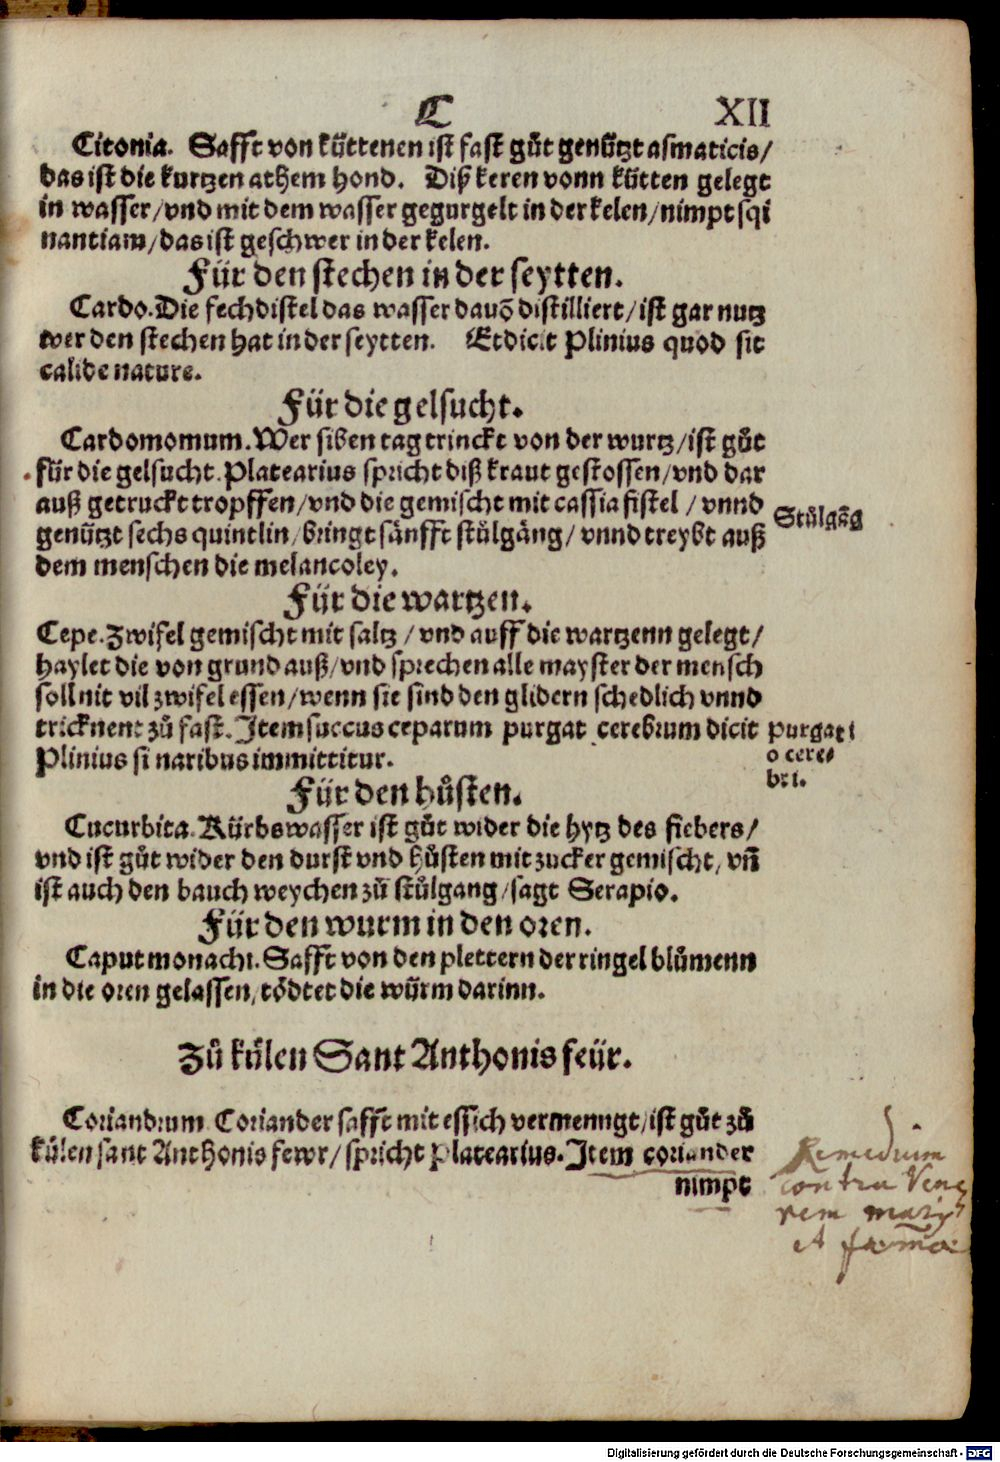 C XII
Citonia. Safft von küttenen ist fast gůt genützt asmaticis/
das ist die kurtzen athem hond. Diß keren vonn kütten gelegt
in wasser/vnd mit dem wasser gegurgelt in der kelen/nimpt sqi
nantiam/das ist geschwer in der kelen.
Für den stechen in der seytten.
Cardo. Die fechdistel das wasser dauõ distilliert/ist gar nutz
wer den stechen hat in der seytten. Et dicit Plinius quod sit
calide nature.
Für die gelsucht.
Cardomomum. Wer siben tag trinckt von der wurtz/ist gůt
für die gelsucht. Platearius spricht diß kraut gestossen/vnd dar
auß getruckt tropffen/vnd die gemischt mit cassia fistel / vnnd
genützt sechs quintlin/bringt sänfft stůlgäng/ vnnd treybt auß
Stůlgãg
dem menschen die melancoley.
Für die wartzen.
Cepe. Zwifel gemischt mit saltz / vnd auff die wartzenn gelegt/
haylet die von grund auß/vnd sprechen alle mayster der mensch
soll nit vil zwifel essen/wenn sie sind den glidern schedlich vnnd
tricknent zů fast. Item succus ceparum purgat cerebrum dicit
Purgati
Plinius si naribus immittitur.
o cere⸗
bri.
Für den hůsten.
Cucurbita. Kürbswasser ist gůt wider die hytz des fiebers/
vnd ist gůt wider den durst vnd hůsten mit zucker gemischt, vñ
ist auch den bauch weychen zů stůlgang/sagt Serapio.
Für den wurm in den oren.
Caput monachi. Safft von den plettern der ringel blůmenn
in die oren gelassen/tödtet die würm darinn.
Zů kůlen Sant Anthonis feür.
Coriandrum Coriander safft mit essich vermenngt/ist gůt zů
kůlen sant Anthonis fewr/ spricht Platearius. Item coriander
nimpt
Remedium
contra Vene
rem maris
et